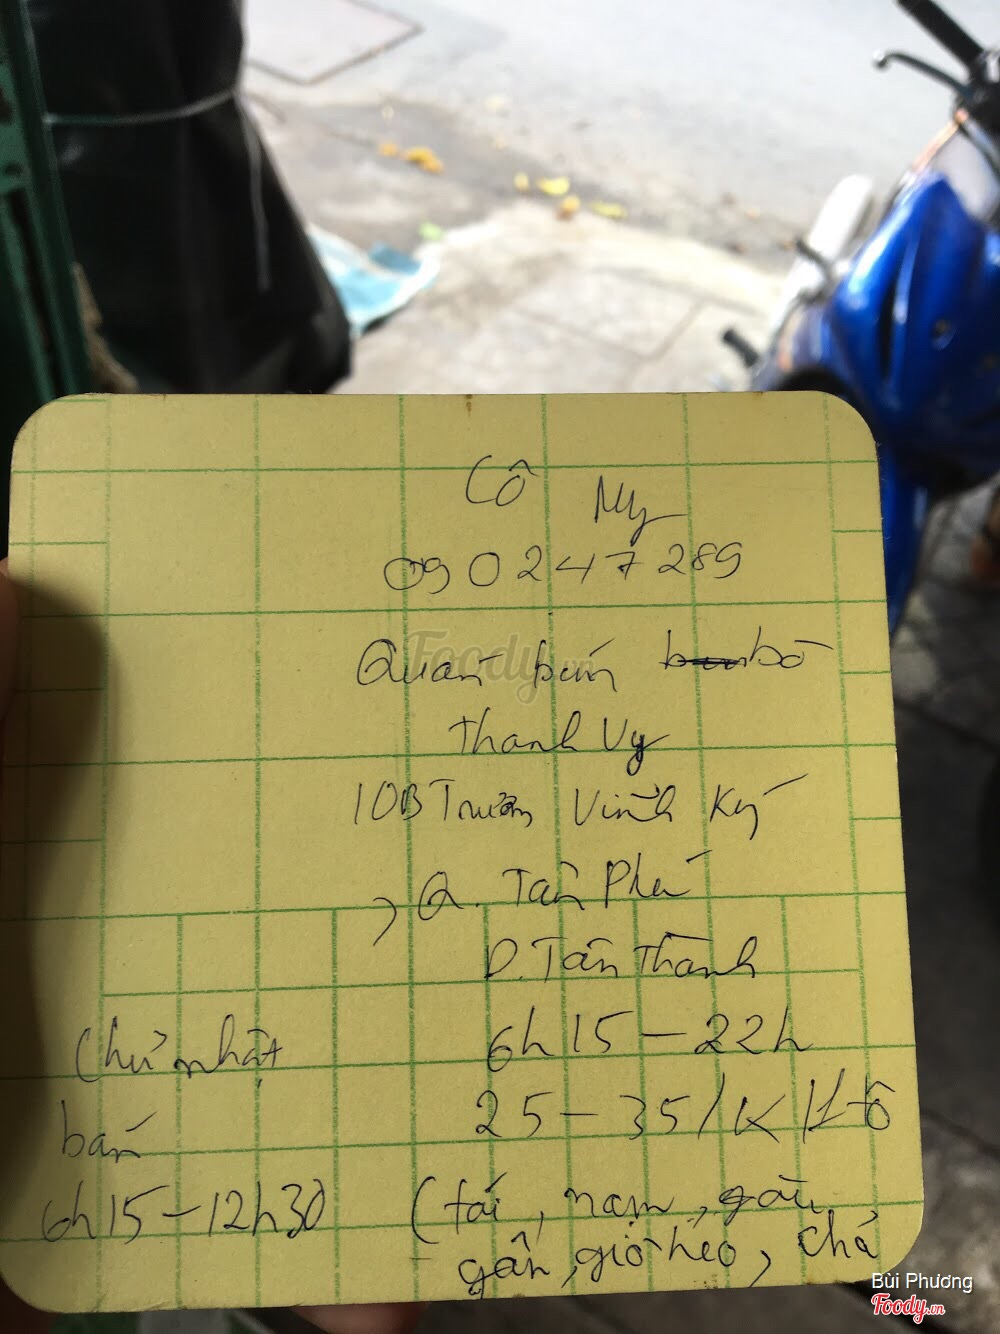 Cô My
090247289
Quán bún bò
Thanh Vy
10B Trương Vĩnh Ký
, Q. Tân Phú
P. Tân Thành
6h15 - 22h
25 - 35/K/1 tô
(tái, nạm, gàu,
gân, giò heo, chả
Chủ nhật
bán
6h15 - 12h30
Foody.vn
Bùi Phương
Foody.vn